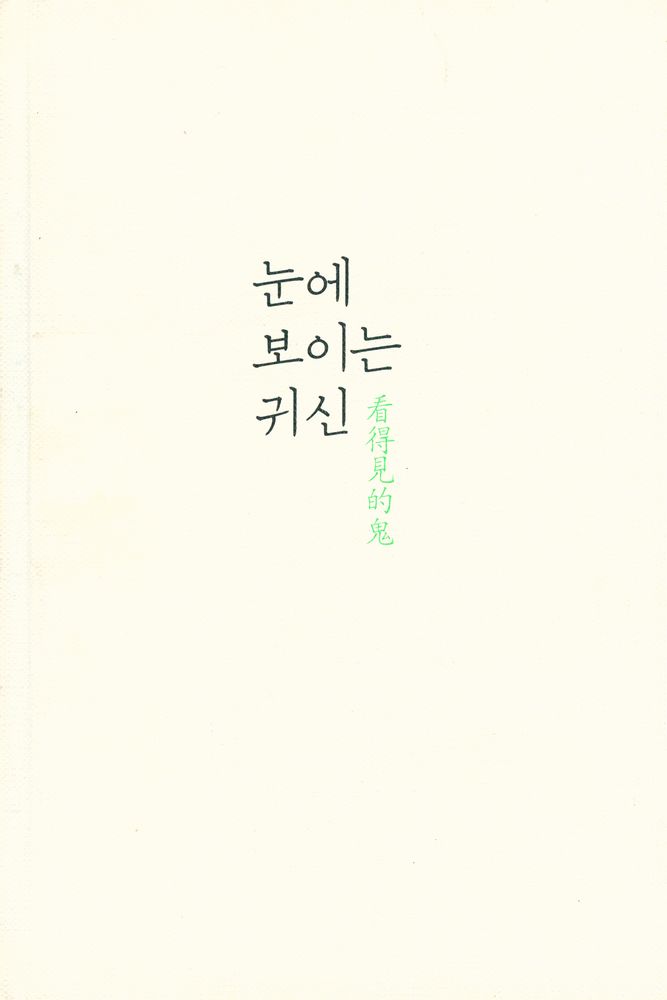 눈에
보이는
귀신
看得見的鬼